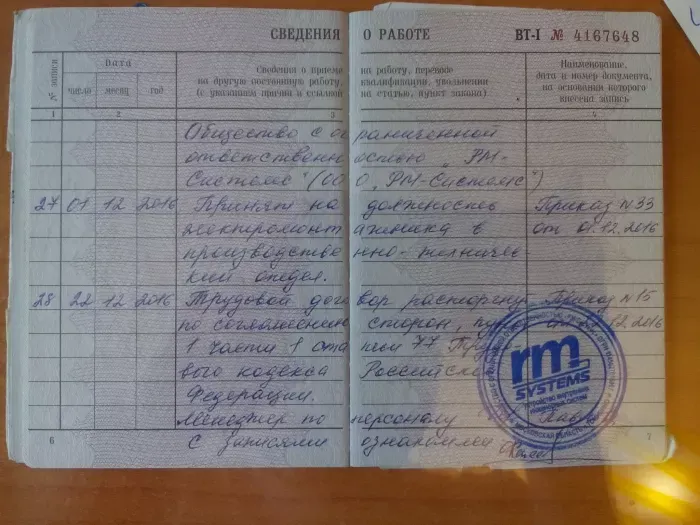 СВЕДЕНИЯ О РАБОТЕ ВТ-I № 4167648
№ записи
Дата
число месяц год
Сведения о приеме на работу, переводе
на другую постоянную работу, квалификации, увольнении
(с указанием причин и ссылкой на статью, пункт закона)
Наименование,
дата и номер документа,
на основании которого
внесена запись
1 2 3 4
Общество с ограниченной
ответственностью „РМ-
Системс" (ООО „РМ-Системс")
27 01 12 2016 Принят на должность Приказ N 33
электромонтажника в от 01.12.2016
производственно-техничес-
кий отдел.
28 22 12 2016 Трудовой договор расторгнут Приказ N 15
по соглашению сторон, пункт 12.2016
1 части 1 статьи 77 Трудо
вого кодекса Российской
Федерации.
Менеджер по персоналу
С записями ознакомлен
rm
SYSTEMS
6 7